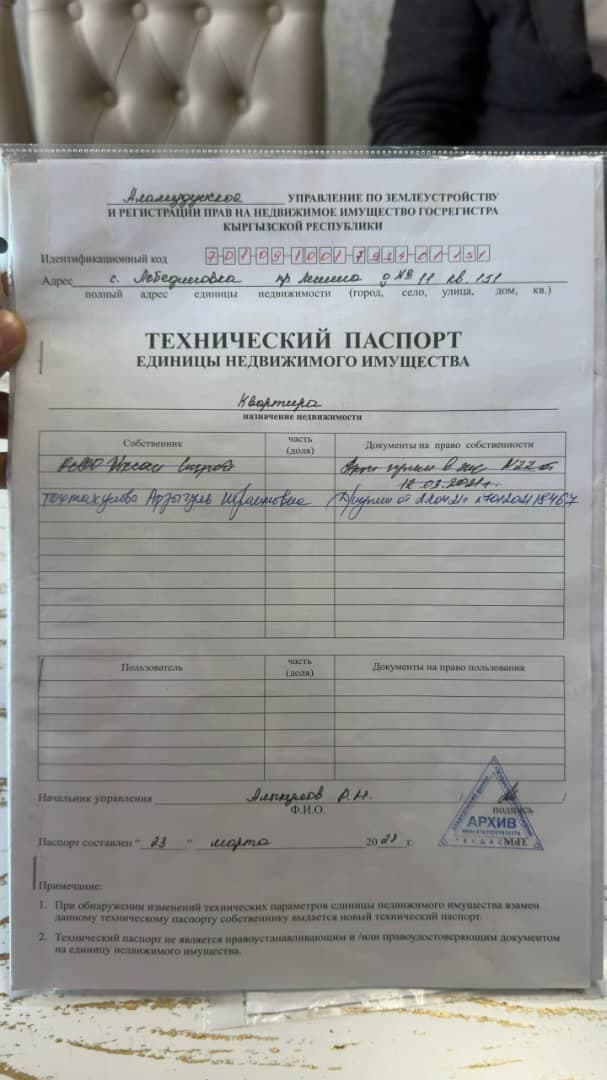 Аламудунское УПРАВЛЕНИЕ ПО ЗЕМЛЕУСТРОЙСТВУ
И РЕГИСТРАЦИИ ПРАВ НА НЕДВИЖИМОЕ ИМУЩЕСТВО ГОСРЕГИСТРА
КЫРГЫЗСКОЙ РЕСПУБЛИКИ
Идентификационный код 7-01-09-1001-7934-01-151
Адрес с. Лебединовка пр Ленина д №11 кв. 151
полный адрес единицы недвижимости (город, село, улица, дом, кв.)
ТЕХНИЧЕСКИЙ ПАСПОРТ
ЕДИНИЦЫ НЕДВИЖИМОГО ИМУЩЕСТВА
Квартира
назначение недвижимости
Собственник часть (доля) Документы на право собственности
ОсОО Ихсан Строй Акт прием в эус N22 от
12.03.2021г.
Арзыгуль Д/купли от 22.04.21г
Пользователь часть (доля) Документы на право пользования
Начальник управления / /
Ф.И.О. подпись
АРХИВ
Паспорт составлен "23" марта 2021 г. М.П.
Примечание:
1. При обнаружении изменений технических параметров единицы недвижимого имущества взамен
данному техническому паспорту собственнику выдается новый технический паспорт.
2. Технический паспорт не является правоустанавливающим и /или правоудостоверяющим документом
на единицу недвижимого имущества.